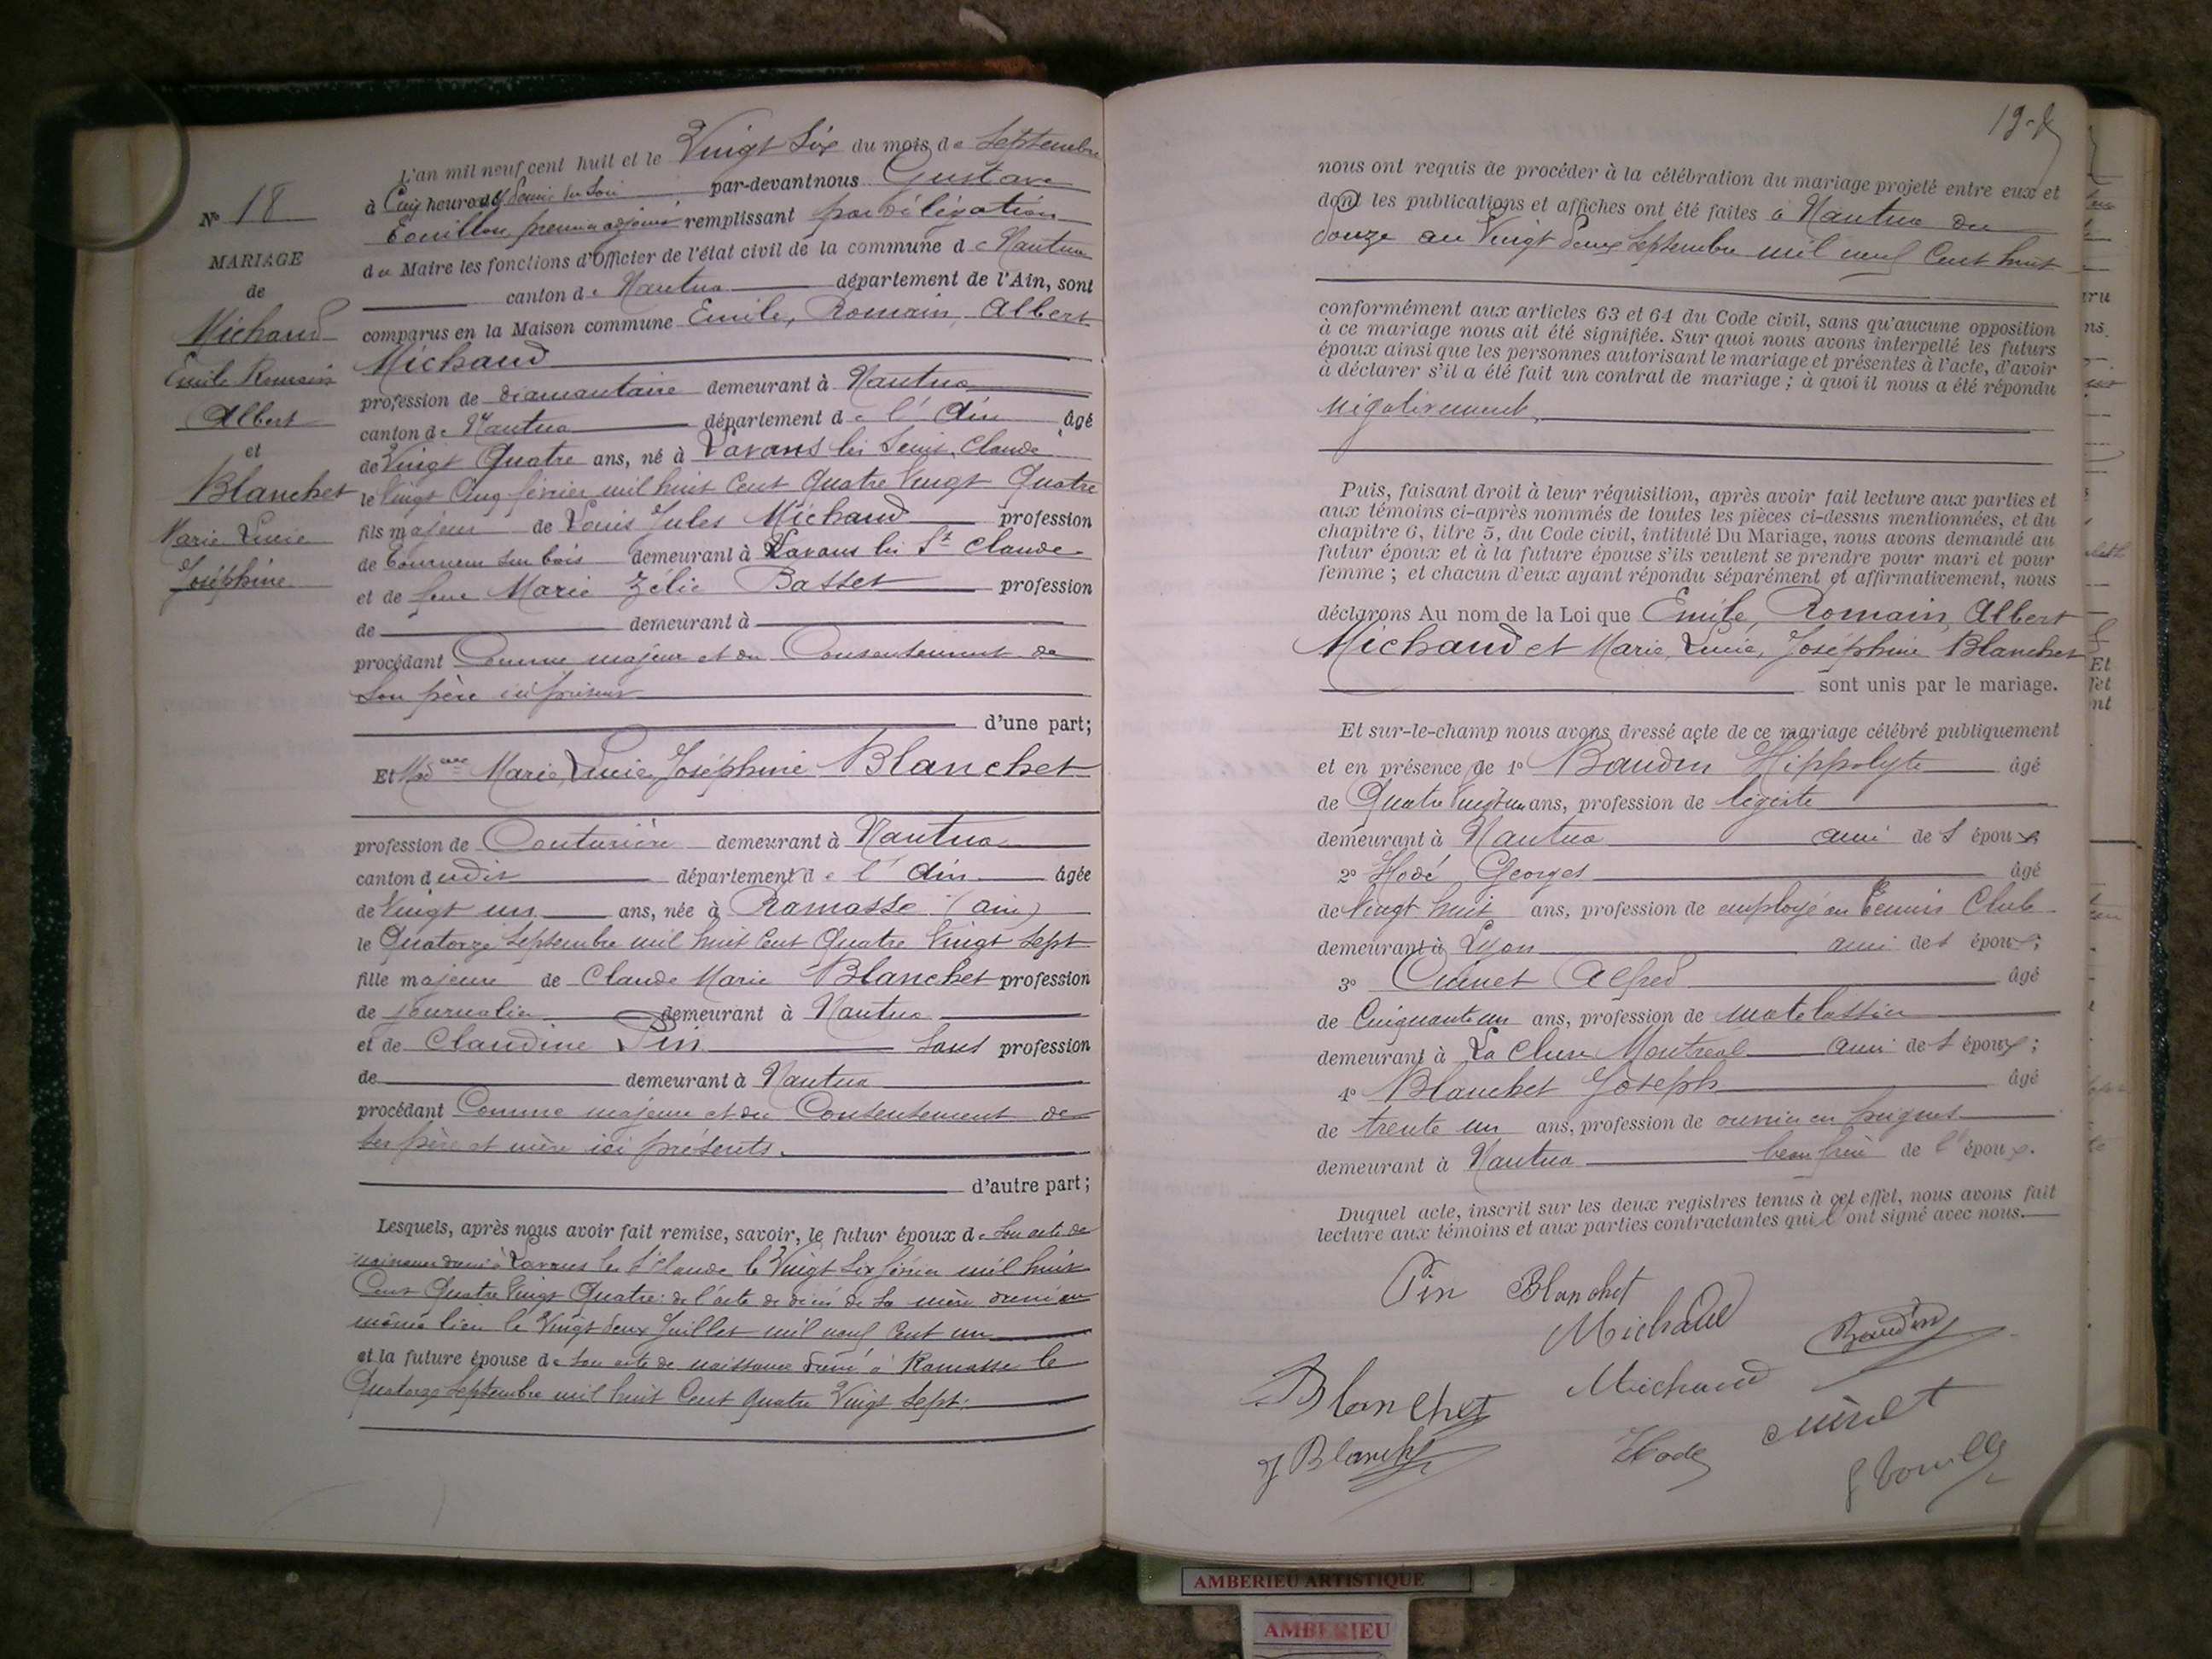 N° 18
MARIAGE
de
Michaud
Emile Romain
Albert
et
Blanchet
Marie Lucie
Joséphine
L'an mil neuf cent huit et le Vingt Six du mois de Septembre
à Cinq heures et demie du soir par-devant nous Gustave
Bouillon premier adjoint remplissant par délégation
du Maire les fonctions d'Officier de l'état civil de la commune de Nantua
canton de Nantua département de l'Ain, sont
comparus en la Maison commune Emile, Romain, Albert
Michaud
profession de diamantaire demeurant à Nantua
canton de Nantua département de l'Ain âgé
de Vingt Quatre ans, né à Lavans les Saint Claude
le Vingt Cinq février mil huit Cent Quatre Vingt Quatre
fils majeur de Louis Jules Michaud profession
de tourneur sur bois demeurant à Lavans les St Claude
et de feue Marie Zélie Basset profession
de demeurant à
procédant Comme majeur et du Consentement de
son père ici présent
d'une part;
Et Melle Marie, Lucie, Joséphine Blanchet
profession de Couturière demeurant à Nantua
canton dudit département de l'Ain âgée
de Vingt un ans, née à Ramasse (ain)
le Quatorze Septembre mil huit Cent Quatre Vingt Sept
fille majeure de Claude Marie Blanchet profession
de journalier demeurant à Nantua
et de Claudine Pin sans profession
de demeurant à Nantua
procédant Comme majeure et du Consentement de
ses père et mère ici présents.
d'autre part;
Lesquels, après nous avoir fait remise, savoir, le futur époux de son acte de
naissance dressé à Lavans les St Claude le Vingt Six février mil huit
Cent Quatre Vingt Quatre: de l'acte de décès de sa mère dressé au
même lieu le Vingt deux Juillet mil neuf Cent un
et la future épouse de son acte de naissance dressé à Ramasse le
Quatorze Septembre mil huit Cent quatre Vingt Sept.
nous ont requis de procéder à la célébration du mariage projeté entre eux et
dont les publications et affiches ont été faites à Nantua du
douze au Vingt deux Septembre mil neuf Cent huit
conformément aux articles 63 et 64 du Code civil, sans qu'aucune opposition
à ce mariage nous ait été signifiée. Sur quoi nous avons interpellé les futurs
époux ainsi que les personnes autorisant le mariage et présentes à l'acte, d'avoir
à déclarer s'il a été fait un contrat de mariage; à quoi il nous a été répondu
négativement.
Puis, faisant droit à leur réquisition, après avoir fait lecture aux parties et
aux témoins ci-après nommés de toutes les pièces ci-dessus mentionnées, et du
chapitre 6, titre 5, du Code civil, intitulé Du Mariage, nous avons demandé au
futur époux et à la future épouse s'ils veulent se prendre pour mari et pour
femme; et chacun d'eux ayant répondu séparément et affirmativement, nous
déclarons Au nom de la Loi que Emile, Romain, Albert
Michaud et Marie, Lucie, Joséphine Blanchet
sont unis par le mariage.
Et sur-le-champ nous avons dressé acte de ce mariage célébré publiquement
et en présence de 1° Baudin Hippolyte âgé
de Quatre Vingt un ans, profession de légiste
demeurant à Nantua ami des époux
2° Hodé Georges âgé
de Vingt huit ans, profession de employé au Tennis Club
demeurant à Lyon ami des époux;
3° Cuinet Alfred âgé
de Cinquante un ans, profession de matelassier
demeurant à La Cluse Montreal ami des époux;
4° Blanchet Joseph âgé
de trente un ans, profession de ouvrier en peignes
demeurant à Nantua beau frère de l'époux.
Duquel acte, inscrit sur les deux registres tenus à cet effet, nous avons fait
lecture aux témoins et aux parties contractantes qui l'ont signé avec nous.
Pin Blanchet
Michaud
Baudin
Blanchet Michaud
J Blanchet Hodé Cuinet
AMBERIEU ARTISTIQUE
AMBERIEU